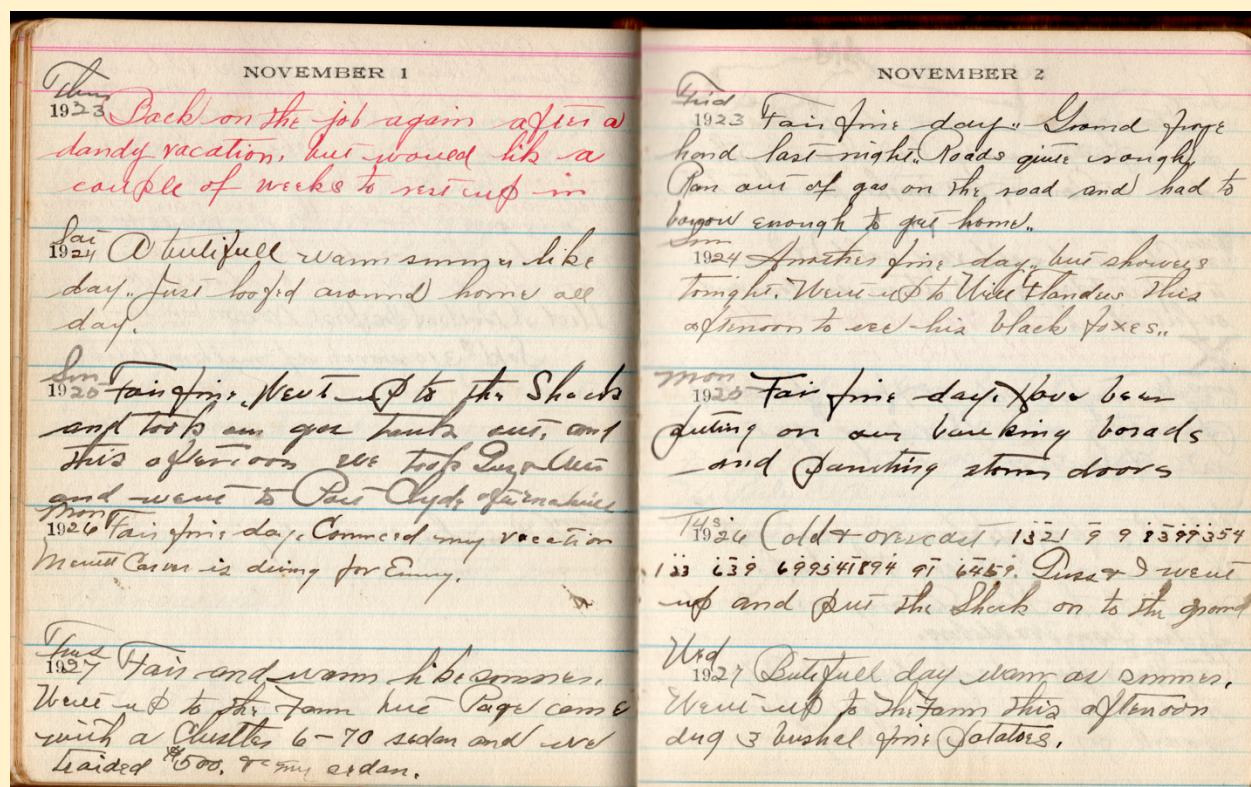 NOVEMBER 1
Thur
1923 Back on the job again after a
dandy vacation. but would lik a
couple of weeks to rest up in
Sat
1924 A butifull warm summer like
day.. just loofed around home all
day.
Sun
1925 Fair fine. Went up to the Shack
and took our gas tank out, and
this afternoon we took Guss
and went to Port Clyde
Mon
1926 Fair fine day. Commced my vacation
Merrett Carver is diving for Emmy.
Tues
1927 Fair and warm like sommer.
Went up to the Farm here Page came
with a 6-70 sedan and we
traided $500. & my sedan.
NOVEMBER 2
Frid
1923 Fair fine day.. Ground froze
hard last night.. Roads quite rough.
Ran out of gas on the road and had to
borrow enough to get home..
Sun
1924 Another fine day.. but showers
tonight. Went up to Will Flandus this
afternoon to see his black foxes..
Mon
1925 Fair fine day. Have been
puting on our banking borads
and painting storm doors
Tus.
1926 Cold & overcast.
Guss & I went
up and put the Shack on to the ground
Wed
1927 Butifull day warm as sommer.
Went up to the Farm this afternoon
dug 3 bushal fine potatoes.